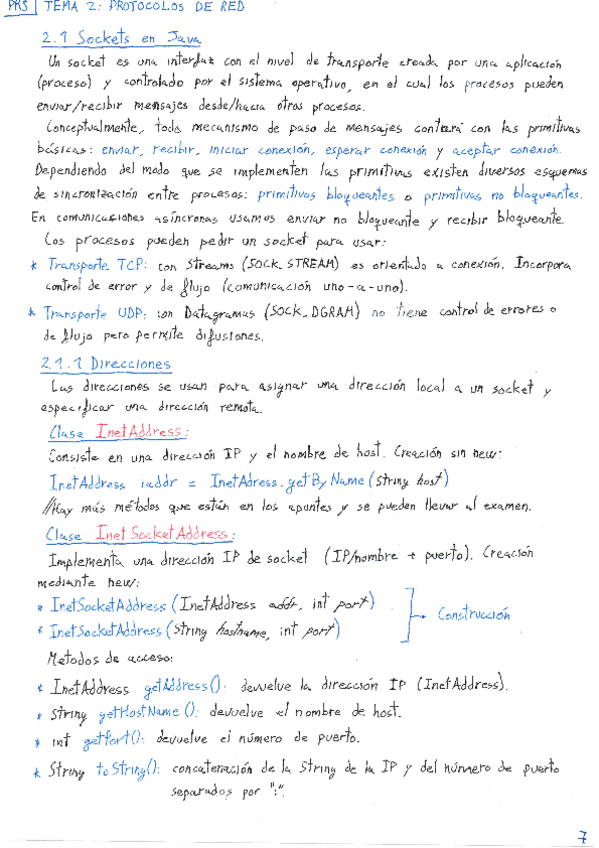 PRS | TEMA 2: PROTOCOLOS DE RED
2.1 Sockets en Java
Un socket es una interfaz con el nivel de transporte creada por una aplicación
(proceso) y controlado por el sistema operativo, en el cual los procesos pueden
enviar/recibir mensajes desde/hacia otros procesos.
Conceptualmente, todo mecanismo de paso de mensajes contará con las primitivas
básicas: enviar, recibir, iniciar conexión, esperar conexión y aceptar conexión.
Dependiendo del modo que se implementen las primitivas existen diversos esquemas
de sincronización entre procesos: primitivas bloqueantes o primitivas no bloqueantes.
En comunicaciones asíncronas usamos enviar no bloqueante y recibir bloqueante.
Los procesos pueden pedir un socket para usar:
* Transporte TCP: con Streams (SOCK_STREAM) es orientado a conexión. Incorpora
control de error y de flujo (comunicación uno-a-uno).
* Transporte UDP: con Datagramas (SOCK_DGRAM) no tiene control de errores o
de flujo pero permite difusiones.
2.1.1 Direcciones
Las direcciones se usan para asignar una dirección local a un socket y
especificar una dirección remota.
Clase InetAddress:
Consiste en una dirección IP y el nombre de host. Creación sin new:
InetAddress iaddr = InetAdress.getByName(String host)
//Hay más métodos que están en los apuntes y se pueden llevar al examen.
Clase InetSocketAddress:
Implementa una dirección IP de socket (IP/nombre + puerto). Creación
mediante new:
* InetSocketAddress (InetAddress addr, int port)
* InetSocketAddress (String hostname, int port)
Construcción
Metodos de acceso:
* InetAddress getAddress(): devuelve la dirección IP (InetAddress).
* String getHostName(): devuelve el nombre de host.
* int getPort(): devuelve el número de puerto.
* String toString(): concatenación de la String de la IP y del número de puerto
separados por ":".
7